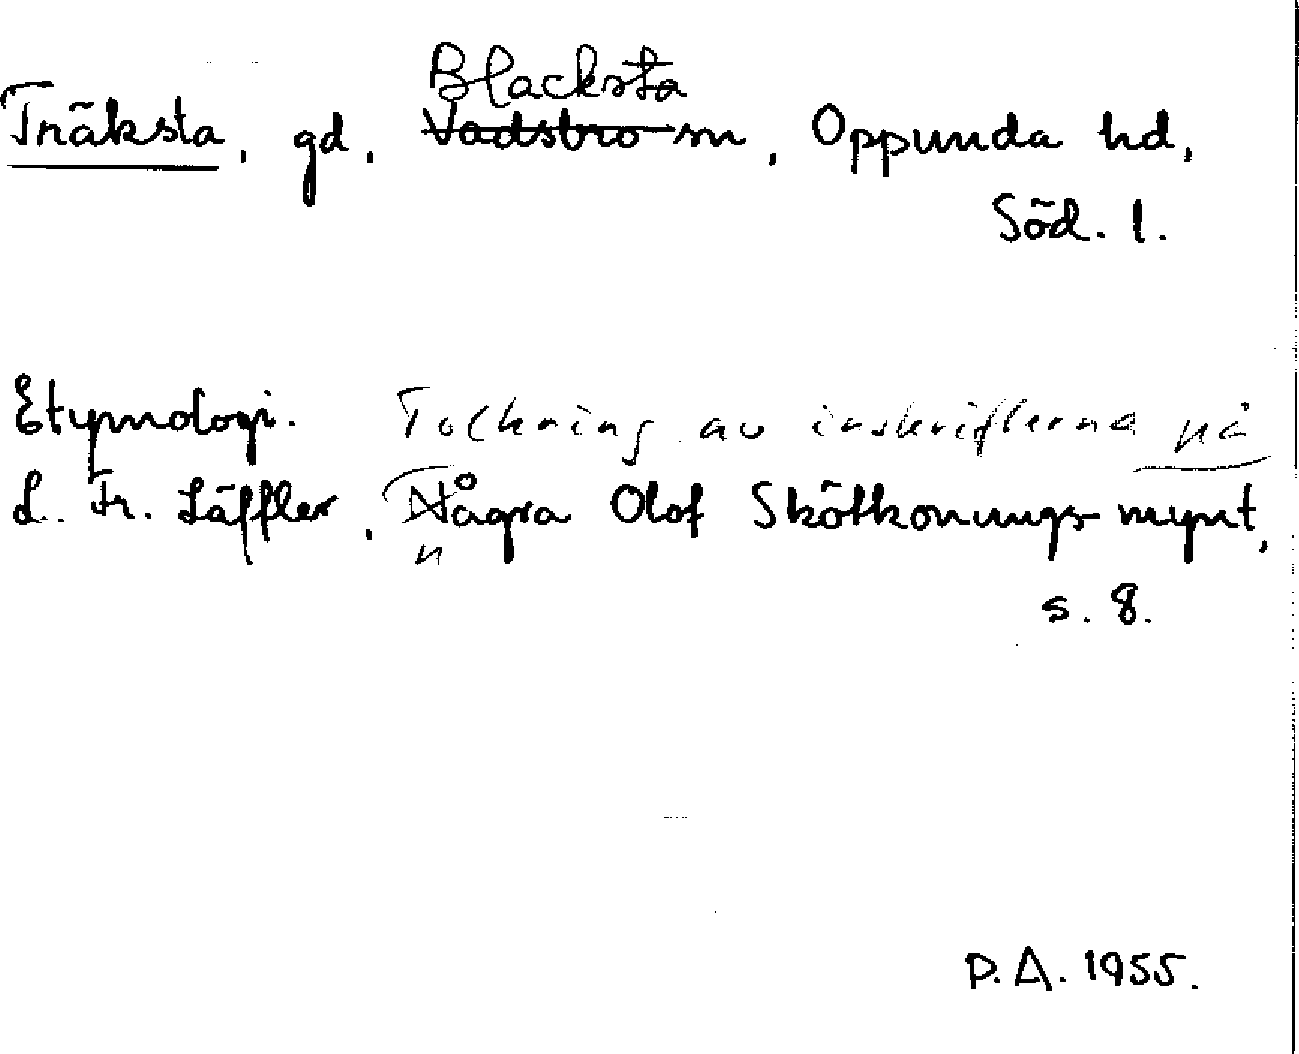 Blacksta
Träksta, gd, Vadsbro sn, Oppunda hd,
Söd. l.
Etymologi. Tolkning av inskrifterna på
L. Fr. Läffler, Några Olof Skötkonungs mynt,
n
s. 8.
D.A. 1955.